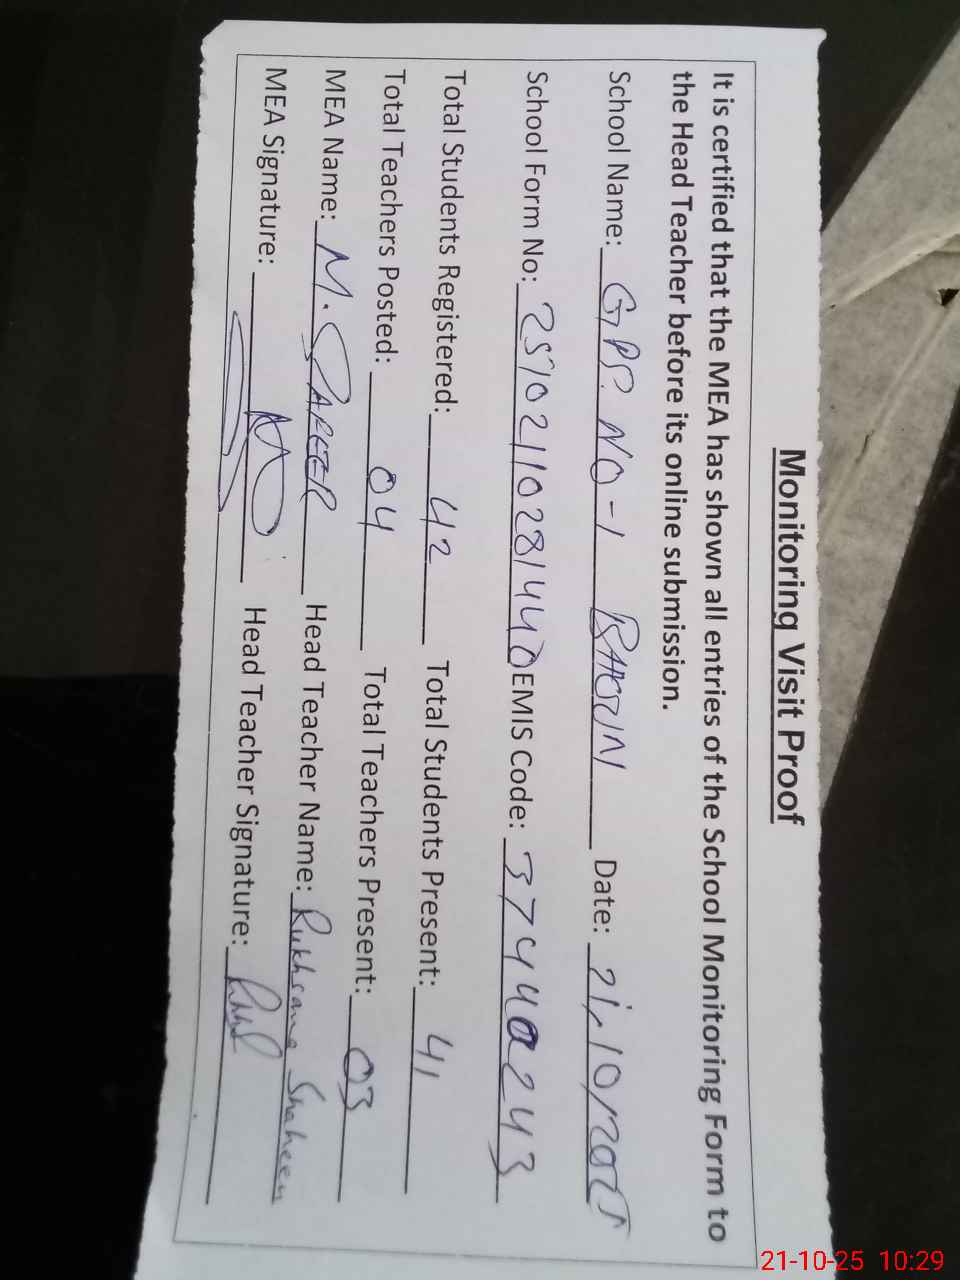 Monitoring Visit Proof
It is certified that the MEA has shown all entries of the School Monitoring Form to
the Head Teacher before its online submission.
School Name: GPS. NO-1 Date: 21,10,2025
School Form No: 251021102814440 EMIS Code: 37440243
Total Students Registered: 42 Total Students Present: 41
Total Teachers Posted: 04 Total Teachers Present: 03
MEA Name: M. SAFEER Head Teacher Name: Rukhsana Shaheen
MEA Signature: Head Teacher Signature:
21-10-25 10:29